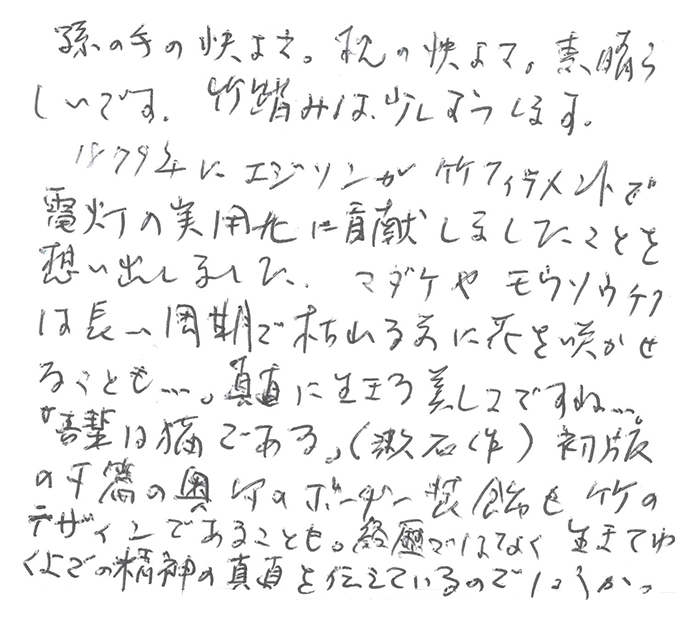 孫の手の快よさ。枕の快よさ。素晴ら
しいです。竹踏みは、少しまうします。
1879年にエジソンが竹フィラメントで
電灯の実用化に貢献しましたことを
想い出しました。マダケやモウソウチク
は長い周期で枯れる前に花を咲かせ
ることも…。真直に生きる美しさですね…。
"吾輩は猫である〟(漱石作)初版
の下篇の奥付のボーダー装飾も竹の
デザインであることも。経歴ではなく生きてゆ
くよでの精神の真直を伝えているのでしょうか。